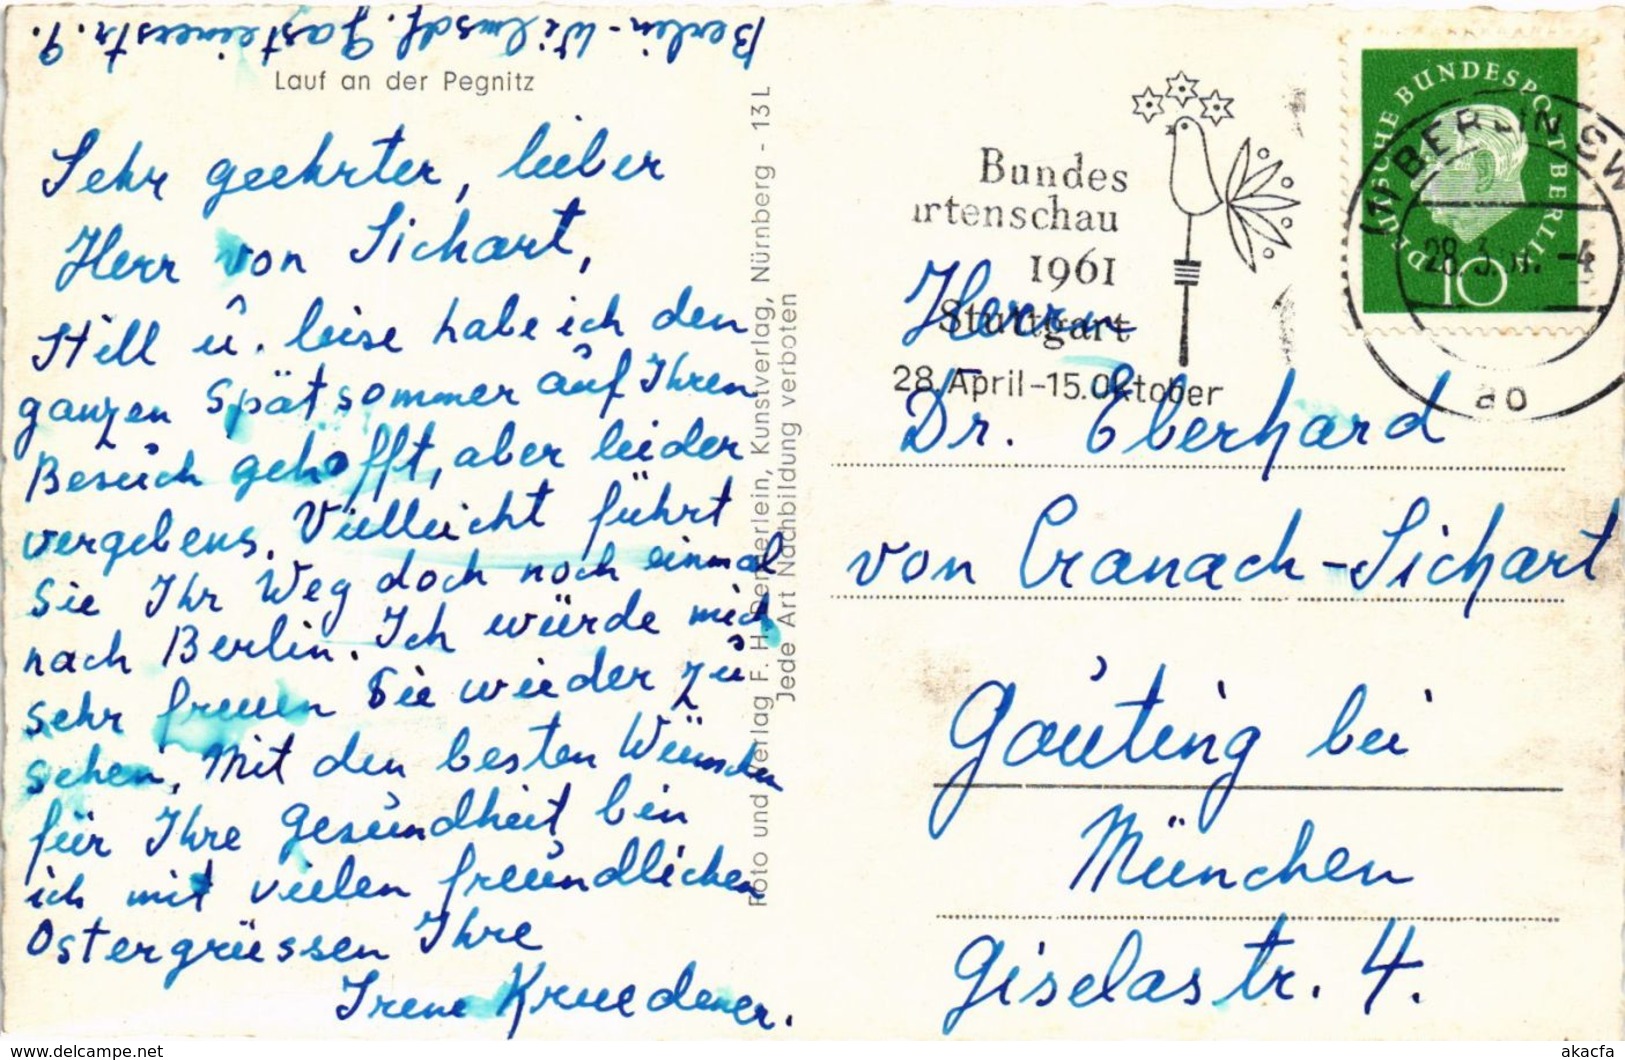 Berlin-Wilmsdf. Gasteinerstr. 9.
Lauf an der Pegnitz
Sehr geehrter, lieber
Herr von Sichart,
Still u. leise habe ich den
ganzen Spätsommer auf Ihren
Besuch gehofft, aber leider
vergebens. Vielleicht führt
Sie Ihr Weg doch noch einmal
nach Berlin. Ich würde mich
sehr freuen Sie wieder zu
sehen. Mit den besten Wünschen
für Ihre Gesundheit bin
ich mit vielen freundlichen
Ostergrüssen Ihre
Irene Kruedener.
Foto und Verlag F. H. Derlein, Kunstverlag, Nürnberg - 13 L
Jede Art Nachbildung verboten
Bundes
artenschau
1961
Stuttgart
28. April-15. Oktober
DEUTSCHE BUNDESPOST BERLIN
10
(1) BERLIN SW
28.3.61.-4
ao
Herrn
Dr. Eberhard
von Cranach-Sichart
Gauting bei
München
Giselastr. 4.
https://www.delcampe.net
akacfa